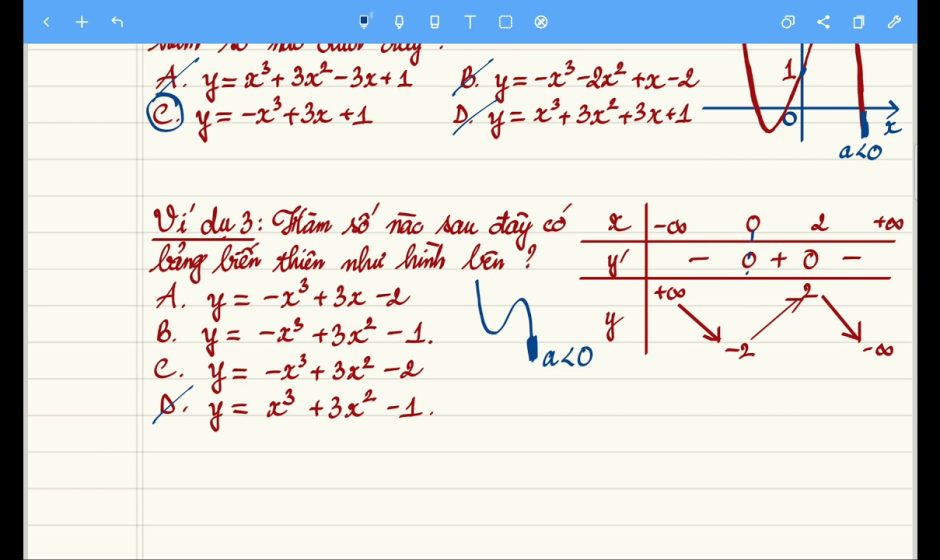 A. y = x³ + 3x² - 3x + 1 B. y = -x³ - 2x² + x - 2
C. y = -x³ + 3x + 1 D. y = x³ + 3x² + 3x + 1
1
0
x
a<0
Ví dụ 3: Hàm số nào sau đây có
bảng biến thiên như hình bên?
A. y = -x³ + 3x - 2
B. y = -x³ + 3x² - 1.
C. y = -x³ + 3x² - 2
D. y = x³ + 3x² - 1.
a<0
x -∞ 0 2 +∞
y' - 0 + 0 -
+∞ 2
y
-2 -∞
T